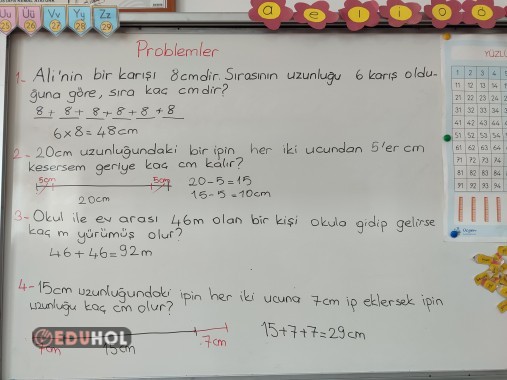 Uu Üü Vv Yy Zz
25 26 27 28 29
a e ı i o ö
Problemler
1- Ali'nin bir karışı 8cmdir. Sırasının uzunluğu 6 karış oldu-
ğuna göre, sıra kaç cmdir?
8 + 8 + 8 + 8 + 8 + 8
6x8=48cm
2- 20cm uzunluğundaki bir ipin her iki ucundan 5'er cm
kesersem geriye kaç cm kalır?
5cm 5cm 20-5=15
20cm 15-5=10cm
3- Okul ile ev arası 46m olan bir kişi okula gidip gelirse
kaç m yürümüş olur?
46+46=92m
4- 15cm uzunluğundaki ipin her iki ucuna 7cm ip eklersek ipin
uzunluğu kaç cm olur?
15+7+7=29cm
7cm 15cm 7cm
EDUHOL
YÜZLÜ
1 2 3 4
11 12 13 14
21 22 23 24
31 32 33 34
41 42 43 44
51 52 53 54
61 62 63 64
71 72 73 74
81 82 83 84
91 92 93 94